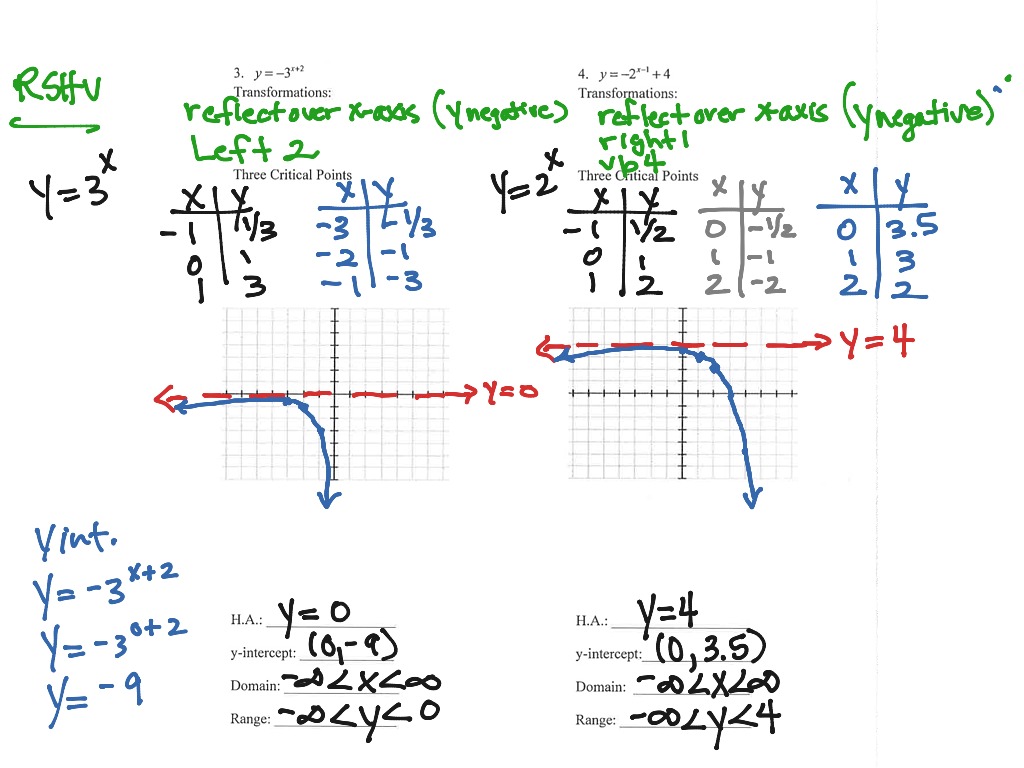 RSHV
3. y = −3^{x+2}
Transformations:
reflect over x-axis (y negative)
Left 2
Three Critical Points
y = 3^x
x | y
-1 | 1/3
0 | 1
1 | 3
x | y
-3 | -1/3
-2 | -1
-1 | -3
y = 0
y int.
y = -3^{x+2}
y = -3^{0+2}
y = -9
H.A.: y = 0
y-intercept: (0, -9)
Domain: -∞ < x < ∞
Range: -∞ < y < 0
4. y = −2^{x−1} + 4
Transformations:
reflect over x-axis (y negative)
right 1
up 4
Three Critical Points
y = 2^x
x | y
-1 | 1/2
0 | 1
1 | 2
x | y
0 | -1/2
1 | -1
2 | -2
x | y
0 | 3.5
1 | 3
2 | 2
y = 4
H.A.: y = 4
y-intercept: (0, 3.5)
Domain: -∞ < x < ∞
Range: -∞ < y < 4